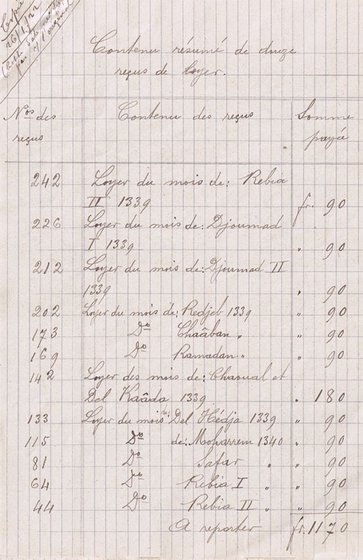 Copie
26/1/22
Contenu résumé de douze
reçus de loyer.
Nos des reçus Contenu des reçus Somme payée
242 Loyer du mois de: Rebia
II 1339 fr. 90
226 Loyer du mois de: Djoumad
I 1339 " 90
212 Loyer du mois de: Djoumad II
1339 " 90
202 Loyer du mois de: Redjeb 1339 " 90
173 Do Chaâban " " 90
169 Do Ramadan " " 90
142 Loyer des mois de: Chaoual et
Del Kaâda 1339 " 180
133 Loyer du mois de: Del Hedja 1339 " 90
115 Do de: Moharrem 1340 " 90
81 Do Safar " " 90
64 Do Rebia I " " 90
44 Do Rebia II " " 90
A reporter fr. 1170